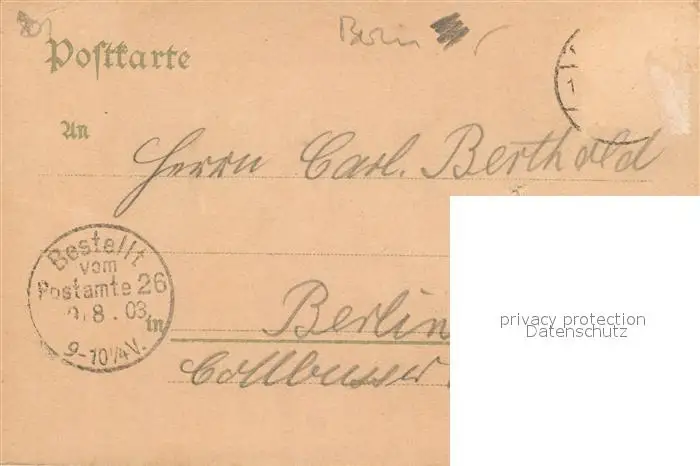 Berlin
Postkarte
An
Herrn Carl. Berthold
Bestellt
vom
Postamte 26
8. 03
9-10¼V.
in
Berlin
Cottbusser
privacy protection
Datenschutz